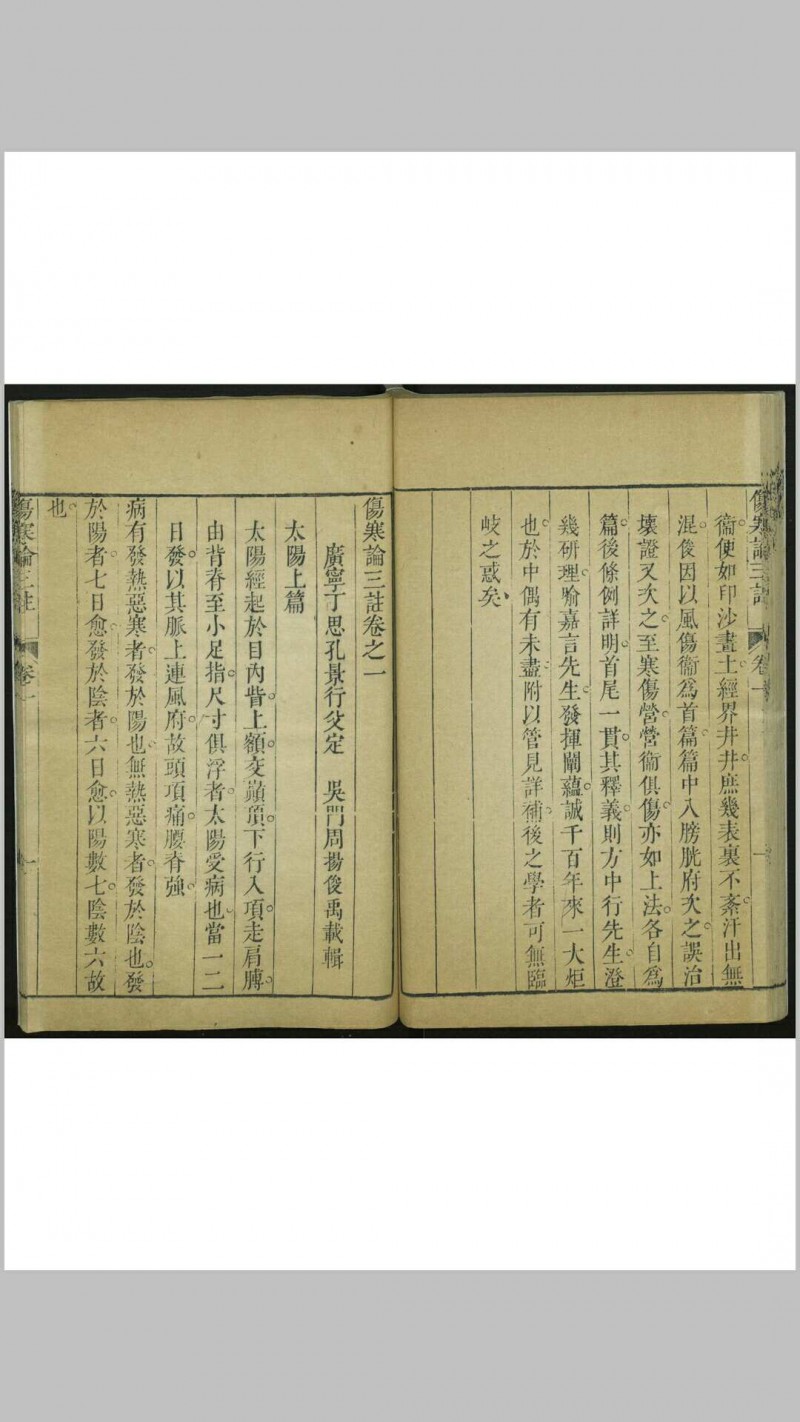 傷寒論三註 卷一 一
衞便如印沙畫土經界井井庶幾表裏不紊汗出無
混俊因以風傷衞爲首篇篇中入膀胱府次之誤治
壞證又次之至寒傷營營衞俱傷亦如上法各自爲
篇後條例詳明首尾一貫其釋義則方中行先生澄
幾研理喻嘉言先生發揮闡蘊誠千百年來一大炬
也於中偶有未盡附以管見詳補後之學者可無臨
岐之惑矣
傷寒論三註卷之一
廣寧丁思孔景行父定 吳門周揚俊禹載輯
太陽上篇
太陽經起於目內眥上額交巔頂下行入項走肩膊
由背脊至小足指尺寸俱浮者太陽受病也當一二
日發以其脈上連風府故頭項痛腰脊強
病有發熱惡寒者發於陽也無熱惡寒者發於陰也發
於陽者七日愈發於陰者六日愈以陽數七陰數六故
也
傷寒論三註 卷一 一